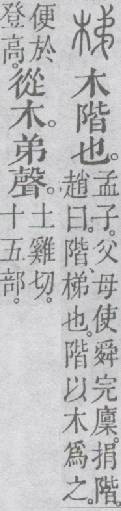 梯 木階也。孟子。父母使舜完廩。捐階。趙曰。階、梯也。階以木爲之。
便於登高。從木。弟聲。土雞切。十五部。